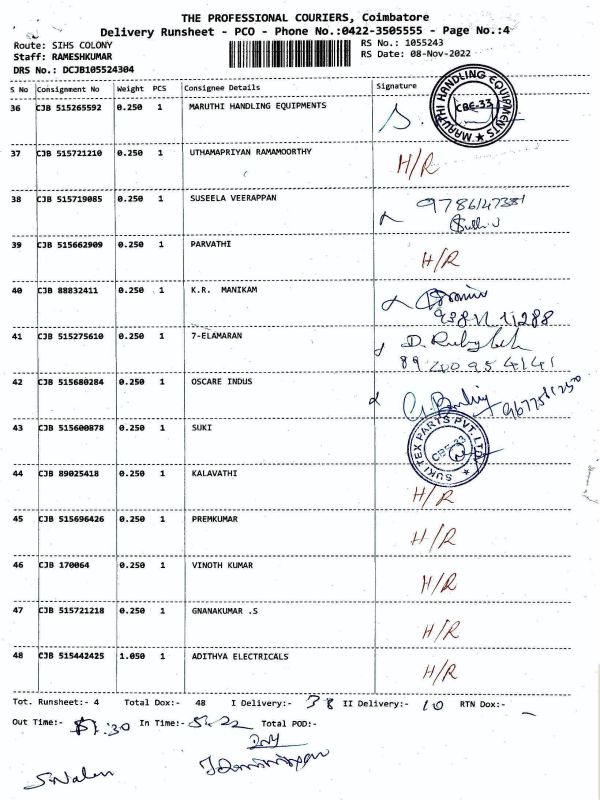 THE PROFESSIONAL COURIERS, Coimbatore
Delivery Runsheet - PCO - Phone No.:0422-3505555 - Page No.:4
Route: SIHS COLONY RS No.: 1055243
Staff: RAMESHKUMAR RS Date: 08-Nov-2022
DRS No.: DCJB105524304
S No Consignment No Weight PCS Consignee Details Signature
36 CJB 515265592 0.250 1 MARUTHI HANDLING EQUIPMENTS
MARUTHI HANDLING EQUIPMENTS CBE-33
37 CJB 515721210 0.250 1 UTHAMAPRIYAN RAMAMOORTHY H/R
38 CJB 515719085 0.250 1 SUSEELA VEERAPPAN
39 CJB 515662909 0.250 1 PARVATHI H/R
40 CJB 88832411 0.250 1 K.R. MANIKAM
41 CJB 515275610 0.250 1 7-ELAMARAN
89400 95 4141
42 CJB 515680284 0.250 1 OSCARE INDUS
43 CJB 515600878 0.250 1 SUKI
SUKI TEX PARTS PVT. LTD. CBE-33
44 CJB 89025418 0.250 1 KALAVATHI H/R
45 CJB 515696426 0.250 1 PREMKUMAR H/R
46 CJB 170064 0.250 1 VINOTH KUMAR H/R
47 CJB 515721218 0.250 1 GNANAKUMAR .S H/R
48 CJB 515442425 1.050 1 ADITHYA ELECTRICALS H/R
Tot. Runsheet:- 4 Total Dox:- 48 I Delivery:- 38 II Delivery:- 10 RTN Dox:- -
Out Time:- In Time:- Total POD:-